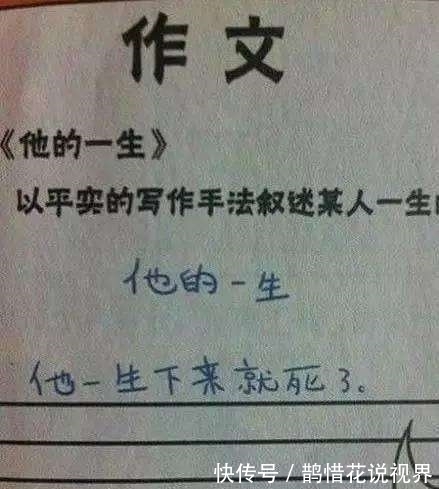 作文
《他的一生》
以平实的写作手法叙述某人一生
他的一生
他一生下来就死了。
快传号/鹊惜花说视界